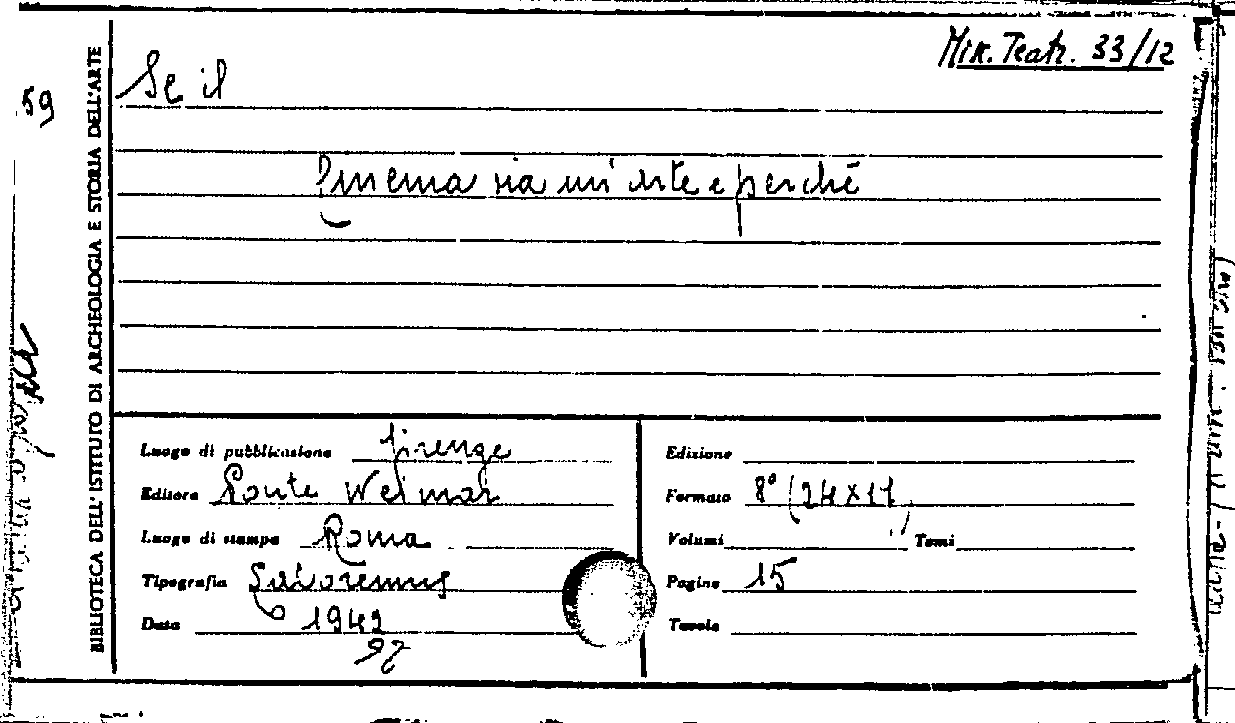 Mik. Teatr. 33/12
59
Se il
BIBLIOTECA DELL'ISTITUTO DI ARCHEOLOGIA E STORIA DELL'ARTE
Cinema sia un'arte e perché
Luogo di pubblicazione Firenze
Editore Ponte Weimar
Luogo di stampa Roma
Tipografia
Data 1942
Edizione
Formato 8° (24×17)
Volumi Tomi
Pagine 15
Tavole